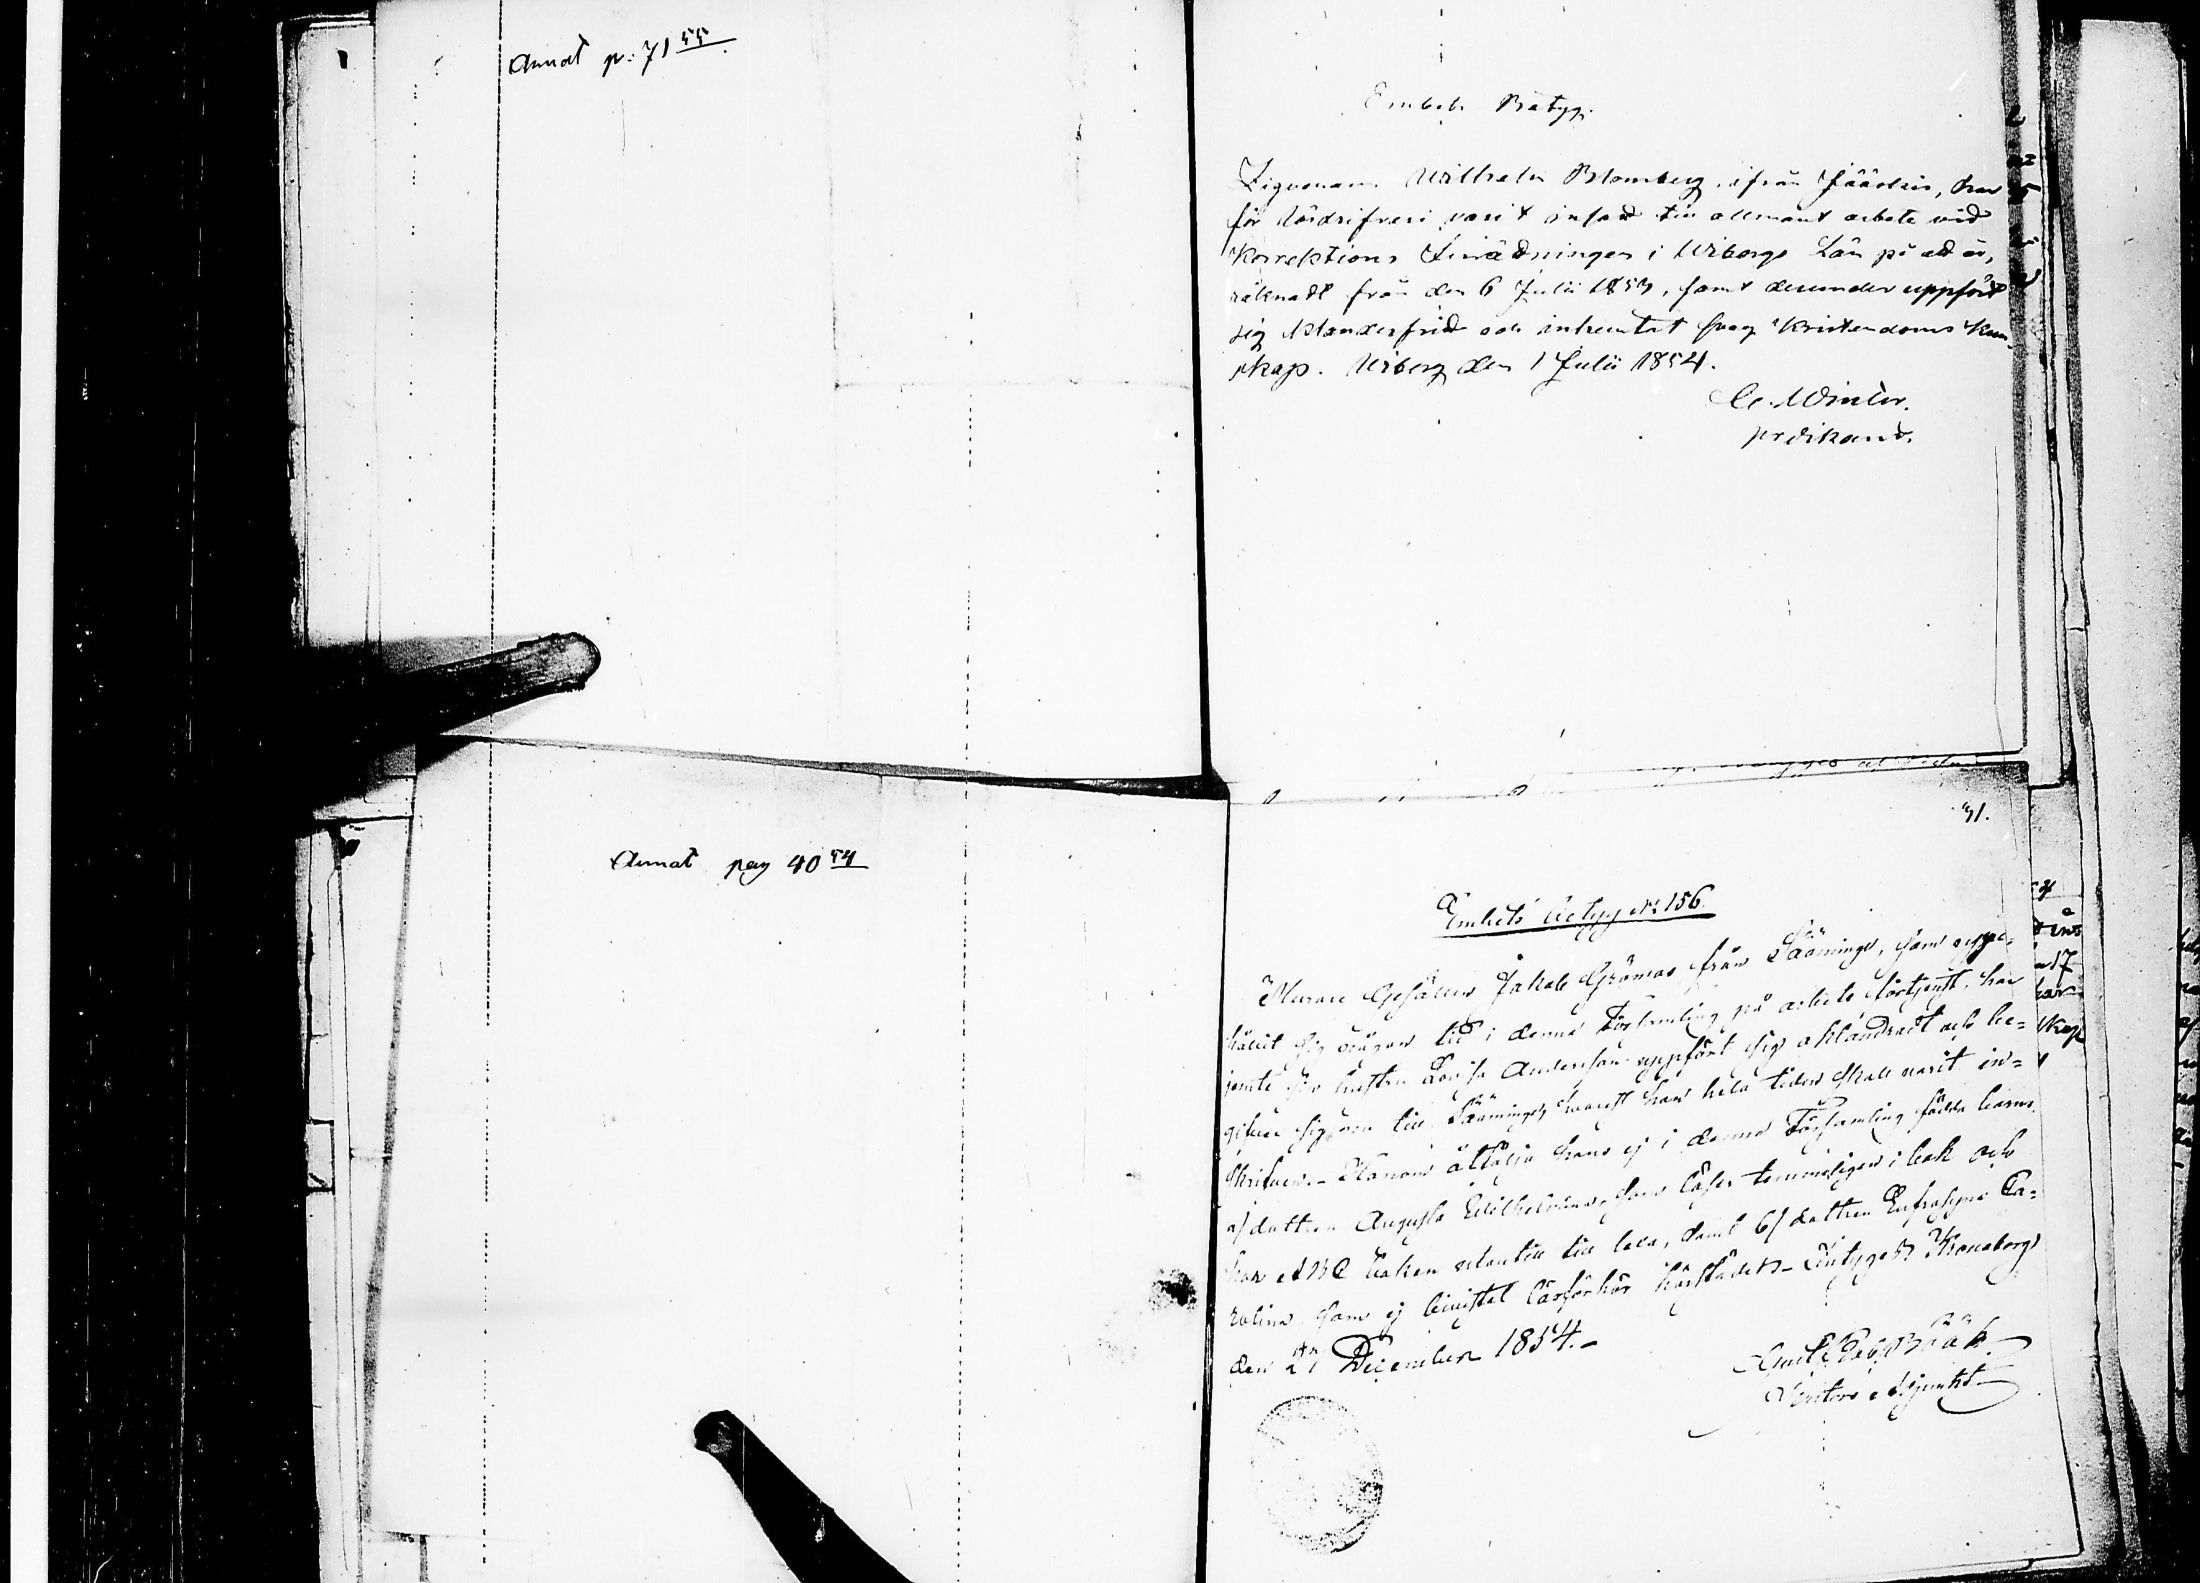 Annot p: 71 55
Embets Betyg.
Zigenaren Wilhelm Blomberg, ifrån Jääskis, har
för lösdrifveri varit insatt till allmänt arbete vid
Korrektions Inrädningen i Wiborgs Län på ett år,
räknadt från den 6 Julii 1853, samt derunder uppfört
sig klanderfritt och inhemtat svag Kristendoms kun-
skap. Wiborg den 1 Julii 1854.
Winter.
predikant.
Annot pag 40 54
31.
Embets Betyg No 156.
Murare Gesällen Jakob Grönroos från Sääminge, som uppe-
hållit sig någon tid i denna Församling på arbets förtjenst, har
jemte sin hustru Lovisa Andersson uppfört sig oklandradt och be-
gifver sig nu till Sääminge, hvarest han hela tiden skall varit in-
skrifven. Honom åtfölja hans ej i denna Församling födda barn:
a/ dottren Augusta Wilhelmina, som läser temmeligen i bok och
har ABC boken utantill till lexa, samt b/ dottren Eufrosyne Ca-
rolina, som ej bevistat läsförhör härstädes. Intygas Kroneborgs
den 27 December 1854.
Adjunkt